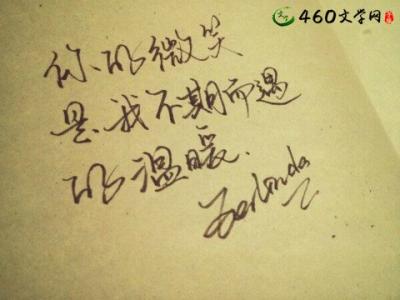 460文学网
你的微笑
是我不期而遇
的温暖.